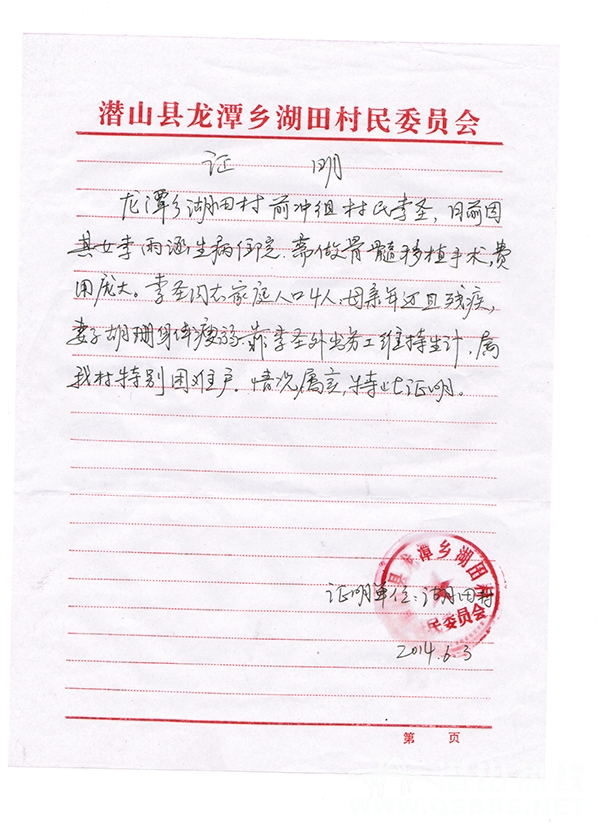 潜山县龙潭乡湖田村民委员会
证 明
龙潭乡湖田村前冲组村民李圣，目前因
其女李雨涵生病住院、需做骨髓移植手术，费
用庞大。李圣同志家庭人口4人、母亲年迈且残疾，
妻子胡珊身体瘦弱、靠李圣外出务工维持生计，属
我村特别困难户。情况属实，特此证明。
县龙潭乡湖田村
民委员会
证明单位：湖田村
2014.6.3
第 页